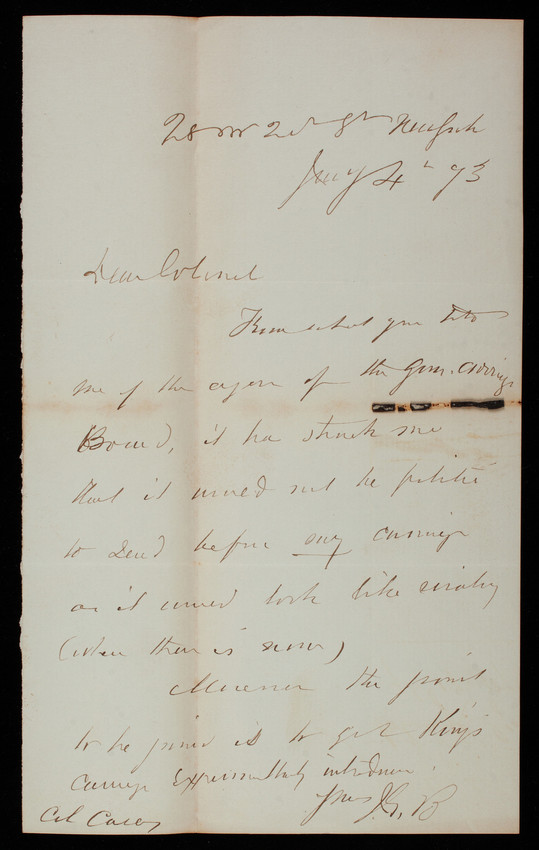 28 W 2d St New York
Jany 4th 73
Dear Colonel
From what you
me of the of the Gun. Carriage
Board, it has struck me
that it would not be politic
to send before any carriage
as it would look like rivalry
(when there is none)
Moreover the point
to be is to get King's
carriage Experimentally introduced.
Yours J.G.B
Col Casey